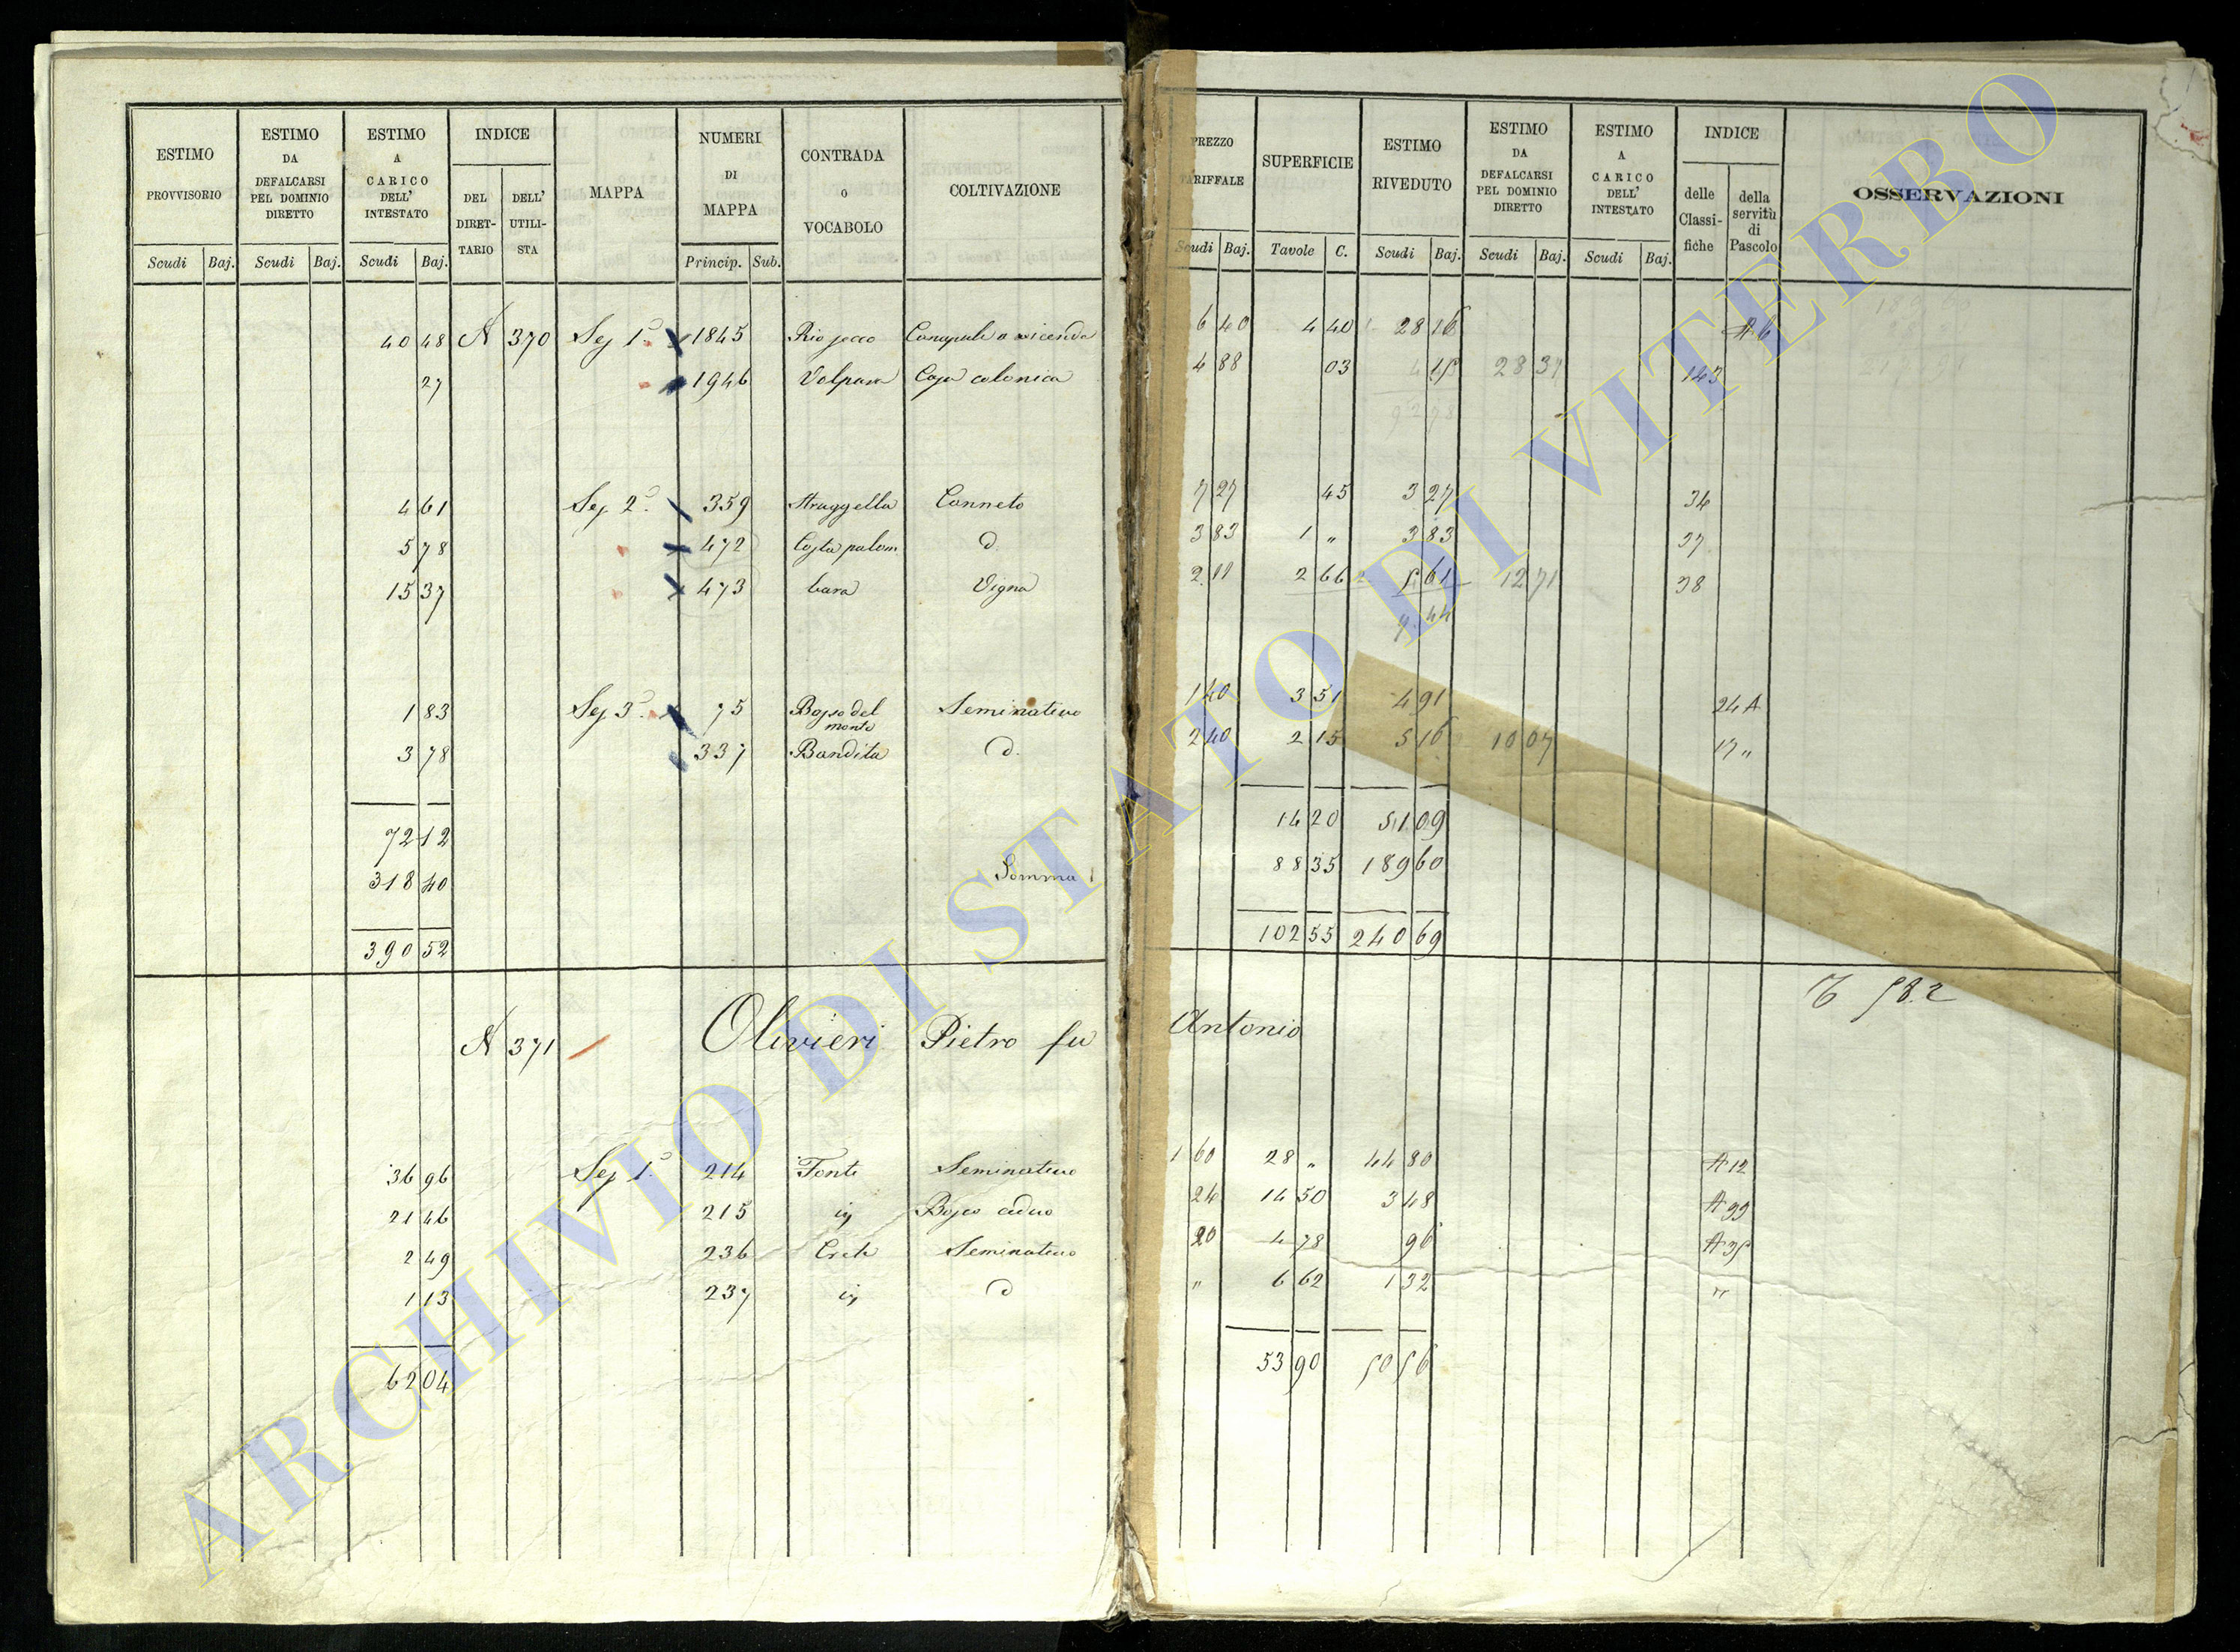 ESTIMO PROVVISORIO
ESTIMO DA DEFALCARSI PEL DOMINIO DIRETTO
ESTIMO A CARICO DELL' INTESTATO
INDICE
DEL DIRET-TARIO
DELL' UTILI-STA
MAPPA
NUMERI DI MAPPA
CONTRADA O VOCABOLO
COLTIVAZIONE
PREZZO TARIFFALE
SUPERFICIE
ESTIMO RIVEDUTO
ESTIMO DA DEFALCARSI PEL DOMINIO DIRETTO
ESTIMO A CARICO DELL' INTESTATO
INDICE
delle Classi-fiche
della servitù di Pascolo
OSSERVAZIONI
Scudi Baj. Scudi Baj. Scudi Baj. Princip. Sub. Scudi Baj. Tavole C. Scudi Baj. Scudi Baj. Scudi Baj.
40 48 N 370 Sez 1ª 1845 Rio secco Canapule a vicenda 6 40 4 40 28 16 A 6
27 1946 Volpara Casa colonica 4 88 03 15 28 31 143
4 61 Sez 2ª 359 Struggella Canneto 7 27 45 3 27 34
5 78 472 Costa palom d. 3 83 1 „ 3 83 37
15 37 473 bara Vigna 2 11 2 66 5 61 12 71 38
7 44
1 83 Sez 3ª 75 Bosso del monte Seminativo 1 40 3 51 4 91 24 A
3 78 337 Bandita d. 2 40 2 15 5 16 10 07 17 „
72 12 14 20 51 09
318 40 Somma 88 35 189 60
390 52 102 55 240 69
582
N 371 Olivieri Pietro fu Antonio
36 96 Sez 1ª 214 Fonte Seminativo 1 60 28 „ 44 80 A 12
21 46 215 ivi Bosco ceduo 24 14 50 3 48 A 99
2 49 236 Crete Seminativo 20 4 78 96 A 35
1 13 237 ivi d „ 6 62 1 32 „
62 04 53 90 50 56
ARCHIVIO DI STATO DI VITERBO